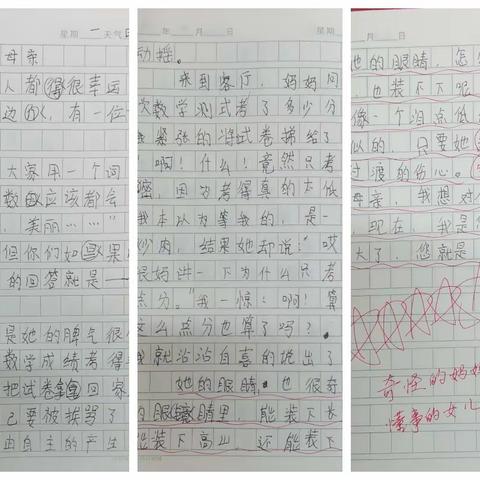 星期一 天气
母亲
人都得很幸运
边的人,有一位
大家用一个词
数的应该都会
,美丽……”
但你们如果
的回答就是——
是她的脾气很
数学成绩考得
把试卷拿回家
己要被挨骂了
由自主的产生
年 月 日 星期
动摇。
来到客厅,妈妈问
次数学测试考了多少分
我紧张的将试卷递给了
啊!什么!竟然只考
,因为考得真的太低
我本以为等我的,是一
炒肉,结果她却说:“哎
很妈讲一下为什么只考
点分。”我一惊:啊!算
这么点分也算了吗?
我就沾沾自喜的说出了
她的眼睛,也很奇
的眼睛里,能装下长
能装下高山,还能装下
她的眼睛,怎
,也装不下呢
像一个泪点低
似的,只要她
过渡的伤心。
母亲,我想对
现在,我是
大了,您就是
奇怪的妈妈
懂事的女儿